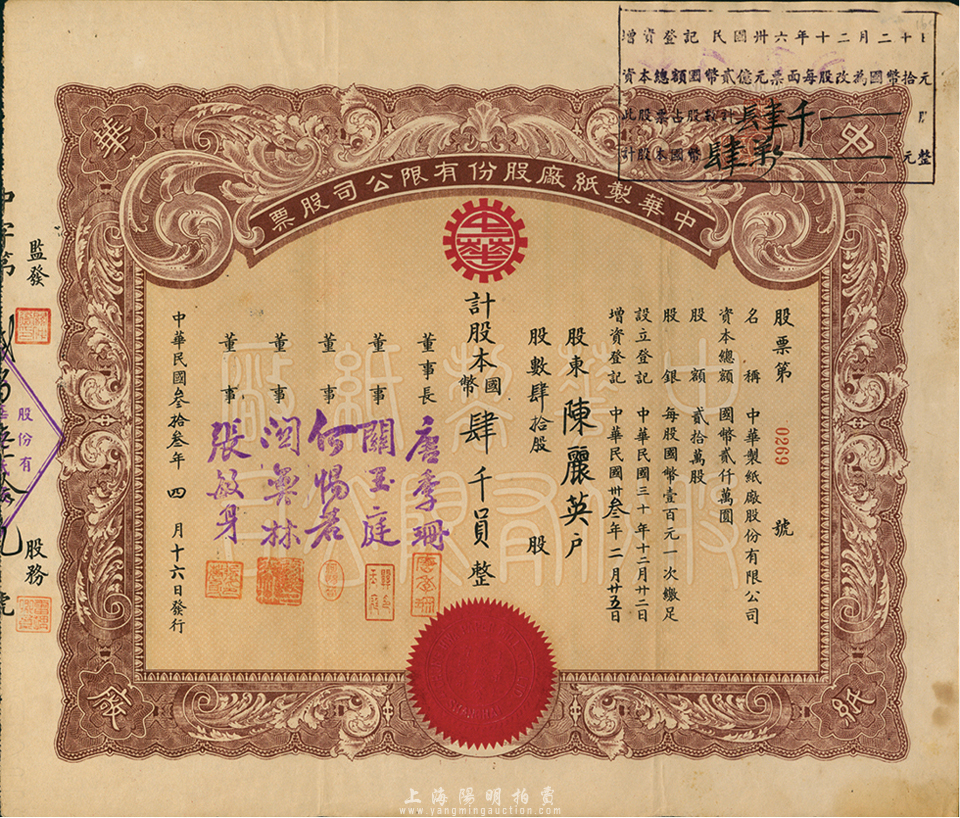 增資登記 民國卅六年十二月二十
資本總額國幣貳億元票面每股改為國幣拾元
此股票占股數計肆千
計股本國幣肆萬元整
中
華
紙
廠
中華製紙廠股份有限公司股票
中華
股票第 0269 號
名稱 中華製紙廠股份有限公司
資本總額 國幣貳仟萬圓
股額 貳拾萬股
股銀 每股國幣壹百元一次繳足
設立登記 中華民國三十年十二月廿二日
增資登記 中華民國卅叁年二月廿五日
股東 陳麗英戶
股數肆拾股 股
計股本國幣肆千員整
董事長 唐季珊
董事 關玉庭
董事 何惕若
董事
董事 張敏
中華民國叁拾叁年四月十六日發行
中華製紙廠
股份有限公司
監發
股務
中字第
號
股份有
上海陽明拍賣
www.yangmingauction.com